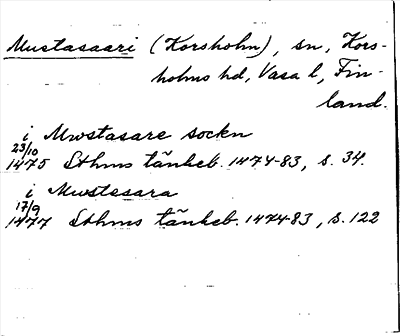 Mustasaari (Korsholm), sn, Kors-
holms hd, Vasa l, Fin-
land.
i Mwstasare sockn
23/10
1475 Sthms tänkeb. 1474-83, s. 34.
i Mwstesara
17/9
1477 Sthms tänkeb. 1474-83, s. 122